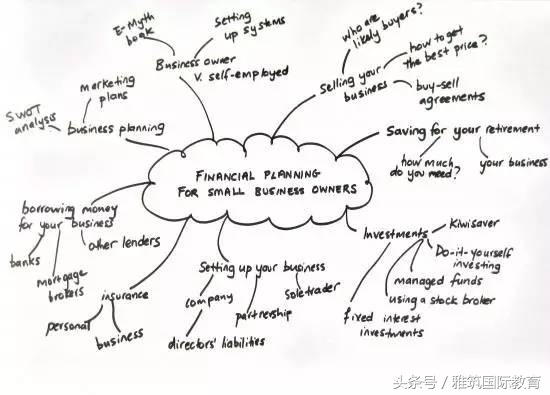 E-Myth
book
Setting
up systems
Business owner
V. self-employed
who are
likely buyers?
how to get
the best price?
Selling your
business
buy-sell
agreements
marketing
plans
SWOT
analysis
business planning
Saving for your retirement
how much
do you need?
your business
FINANCIAL PLANNING
FOR SMALL BUSINESS OWNERS
borrowing money
for your business
banks
mortgage
brokers
other lenders
insurance
personal
business
Setting up your business
company
partnership
sole trader
directors' liabilities
Investments
Kiwisaver
Do-it-yourself
investing
managed funds
using a stock broker
fixed interest
investments
头条号 / 雅筑国际教育